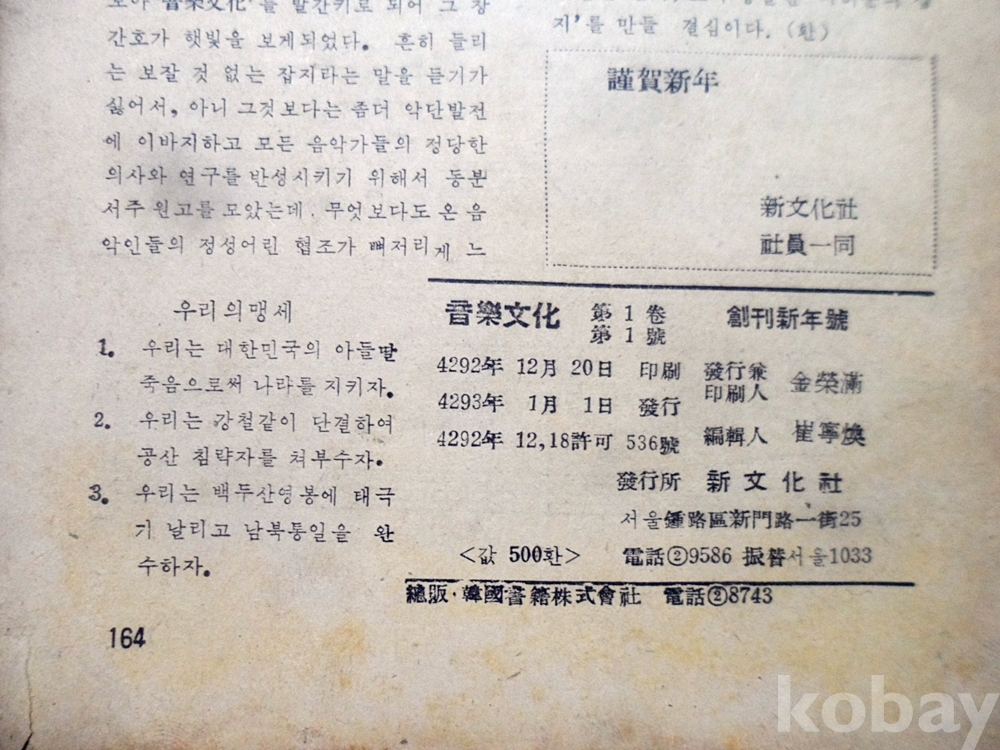 音樂文化'를 발간키로 되어 그 창
간호가 햇빛을 보게되었다. 흔히 들리
는 보잘 것 없는 잡지라는 말을 듣기가
싫어서, 아니 그것보다는 좀더 악단발전
에 이바지하고 모든 음악가들의 정당한
의사와 연구를 반영시키기 위해서 동분
서주 원고를 모았는데. 무엇보다도 온 음
악인들의 정성어린 협조가 뼈저리게 느
지'를 만들 결심이다. (환)
謹賀新年
新文化社
社員一同
우리의맹세
1. 우리는 대한민국의 아들딸
죽음으로써 나라를 지키자.
2. 우리는 강철같이 단결하여
공산 침략자를 쳐부수자.
3. 우리는 백두산영봉에 태극
기 날리고 남북통일을 완
수하자.
音樂文化 第1卷 第1號 創刊新年號
4292年 12月 20日 印刷
4293年 1月 1日 發行
4292年 12,18許可 536號
發行兼
印刷人 金榮滿
編輯人 崔寧煥
發行所 新文化社
서울鍾路區新門路一街25
<값 500환> 電話②9586 振替서울1033
總販·韓國書籍株式會社 電話②8743
164
kobay